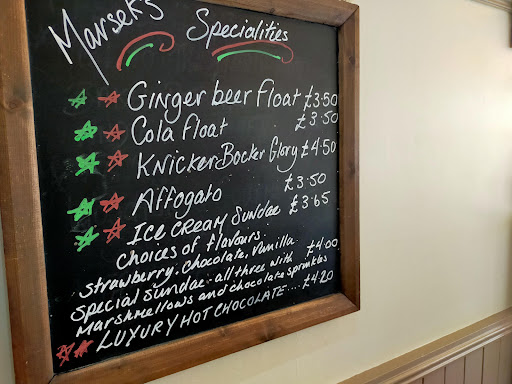 Marsek's Specialities
Ginger beer Float £3.50
Cola Float £3.50
KnickerBocker Glory £4.50
Affogato £3.50
ICE CREAM Sundae £3.65
choices of flavours.
strawberry. chocolate, vanilla.
Special Sundae - all three with £4.00
Marshmellows and chocolate sprinkles
LUXURY HOT CHOCOLATE.... £4.20